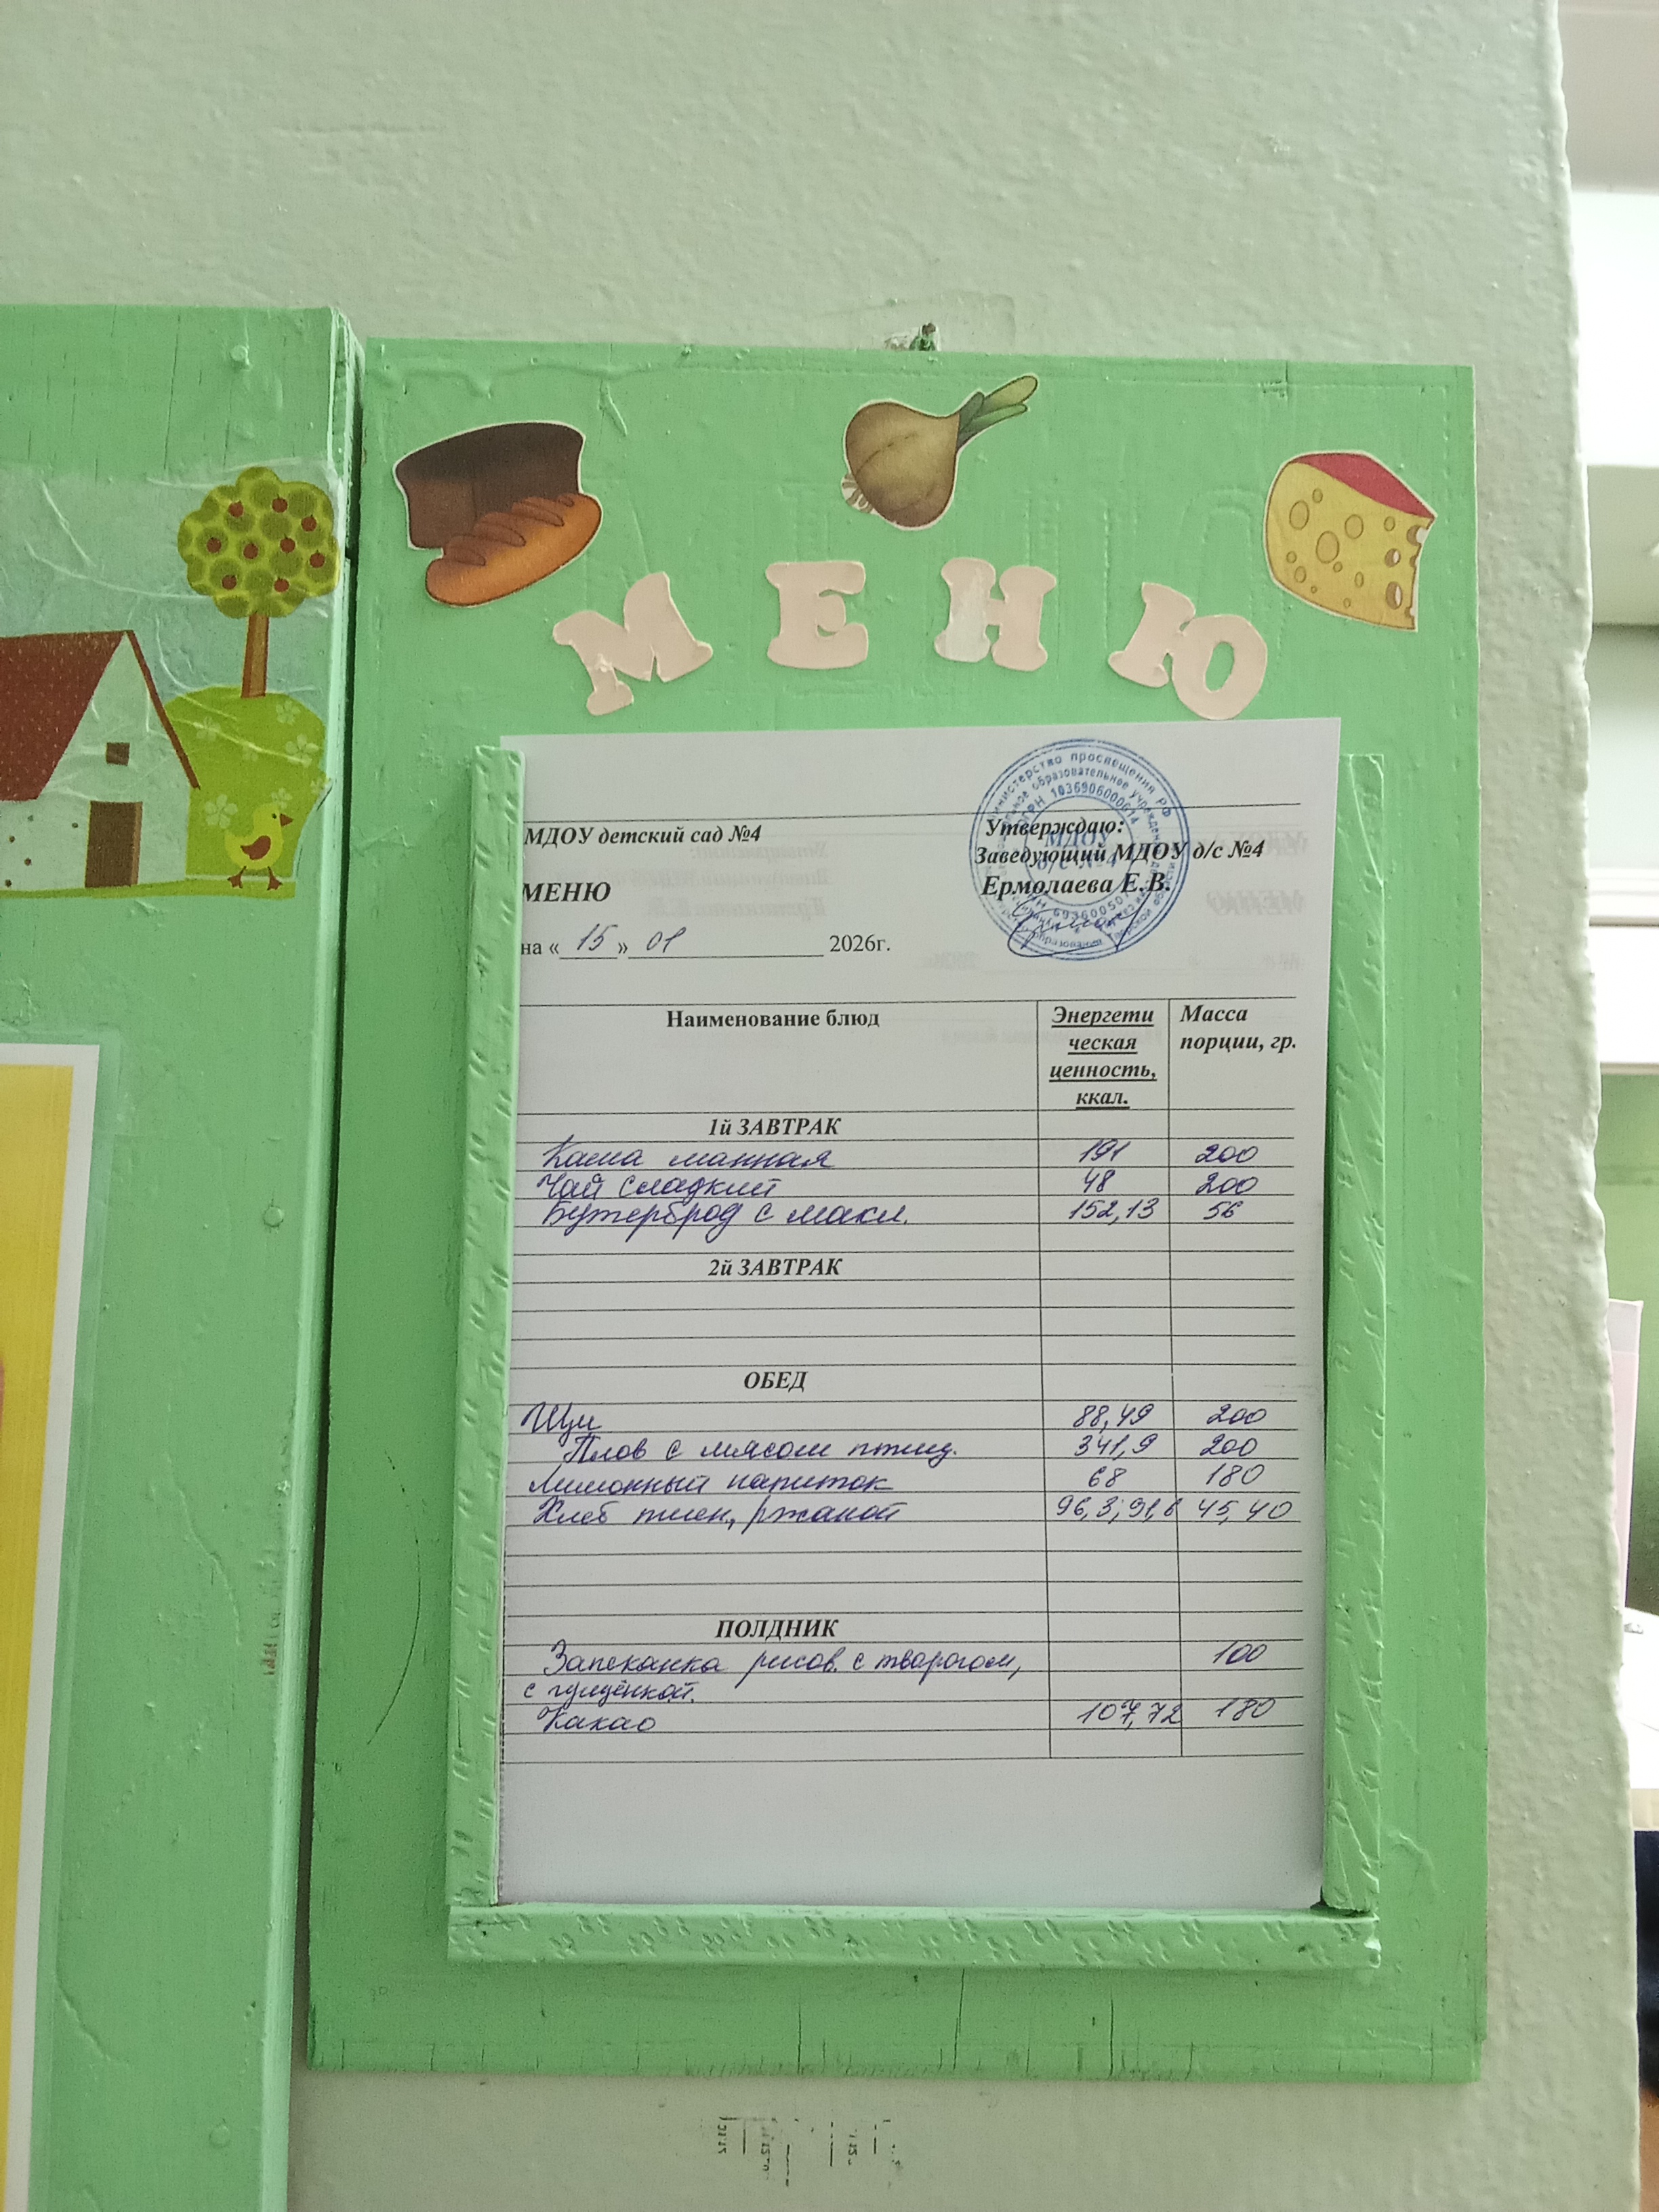 МЕНЮ
МДОУ детский сад №4
Утверждаю:
Заведующий МДОУ д/с №4
МЕНЮ
Ермолаева Е.В.
на « 15 » 01 2026г.
министерство просвещения РФ
ОГРН 1036906000614
МДОУ
д/с №4
Наименование блюд Энергети Масса
ческая порции, гр.
ценность,
ккал.
1й ЗАВТРАК
Каша манная 191 200
Чай сладкий 48 200
Бутерброд с масл. 152,13 56
2й ЗАВТРАК
ОБЕД
Щи 88,49 200
Плов с мясом птиц. 341,9 200
Лимонный напиток 68 180
Хлеб пшен, ржаной 96,3; 91,6 45, 40
ПОЛДНИК
Запеканка рисов. с творогом, 100
с гущёнкой.
Какао 107,72 180